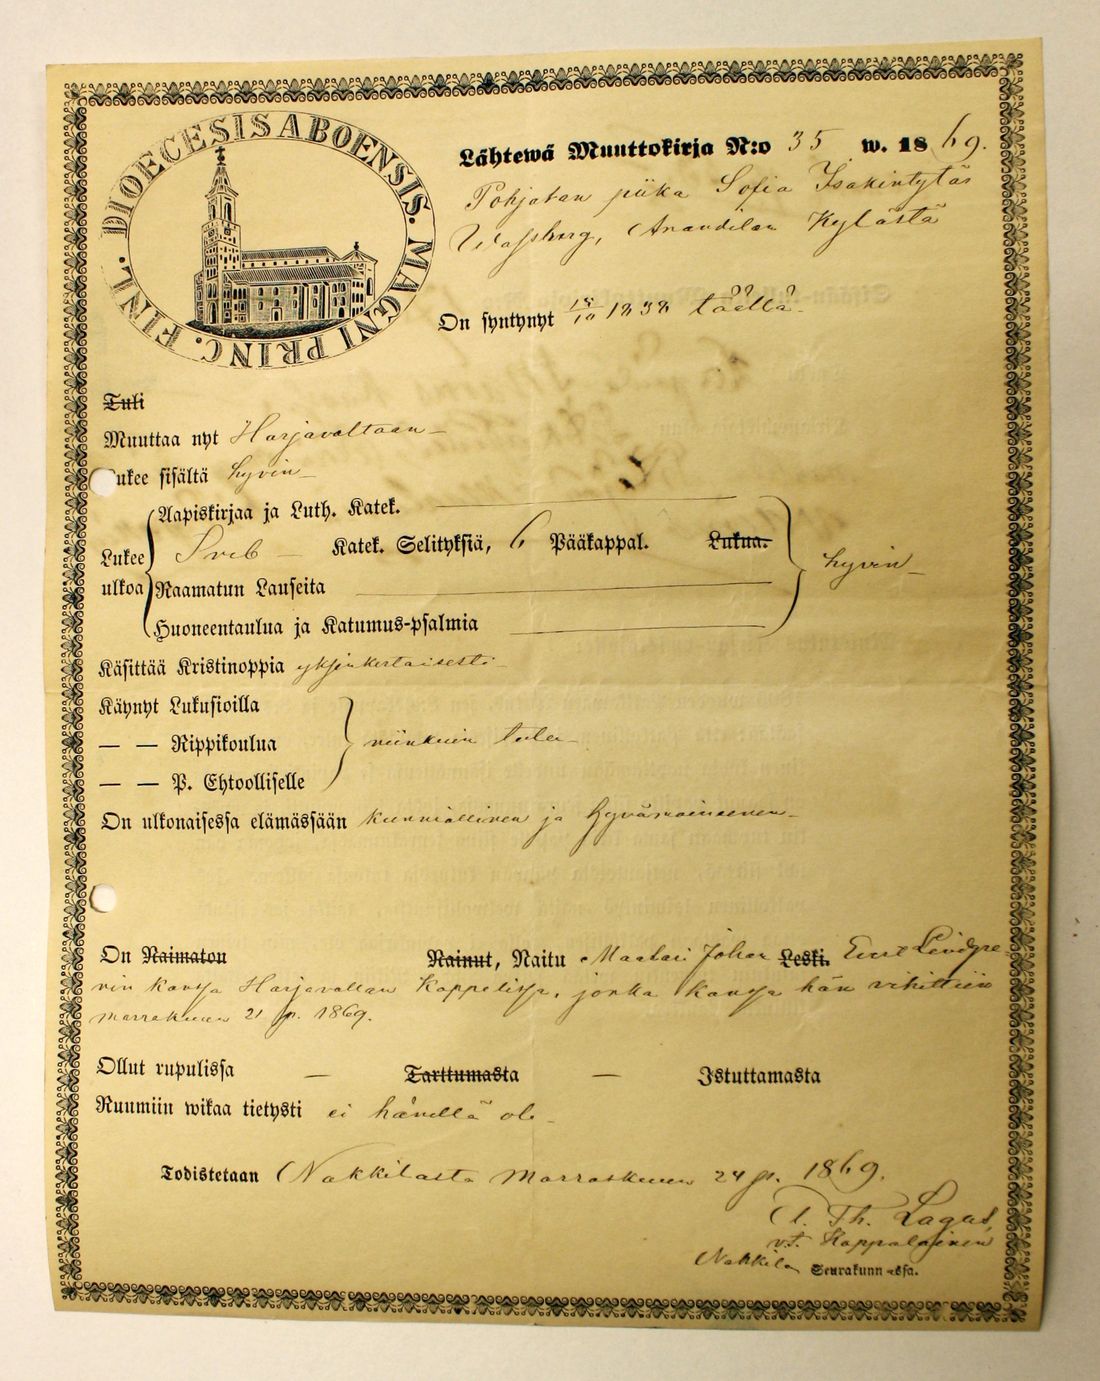 DIOECESIS ABOENSIS. MAGNI PRINC. FINL.
Lähtewä Muuttokirja N:o 35 w. 1869.
piika Sofia Isakintytär
Kylästä
On syntynyt 18/10 1838 täällä
Tuli
Muuttaa nyt Harjavaltaan
ukee sisältä hyvin
Aapiskirjaa ja Luth. Katek.
Lukee Sveb Katek. Selityksiä, 6 Pääkappal. Lukua. hyvin
ulkoa Raamatun Lauseita
Huoneentaulua ja Katumus-psalmia
Käsittää Kristinoppia yksinkertaisesti
Käynyt Lukusioilla
— — Rippikoulua niinkuin tulee
— — P. Ehtoolliselle
On ulkonaisessa elämässään kunniallinen ja hyvämaineinen
On Naimaton Nainut, Naitu Johan Leski. Lindgre
nin kanssa Harjavallan Kappelissa, jonka kanssa hän vihittiin
marraskuun 21 p. 1869.
Ollut rupulissa — Tarttumasta — Istuttamasta
Ruumiin wikaa tietysti ei hänellä ole
Todistetaan Nakkilasta marraskuun 24 p. 1869.
Th. Lagus,
v.t. Kappalainen
Nakkila Seurakunnassa.